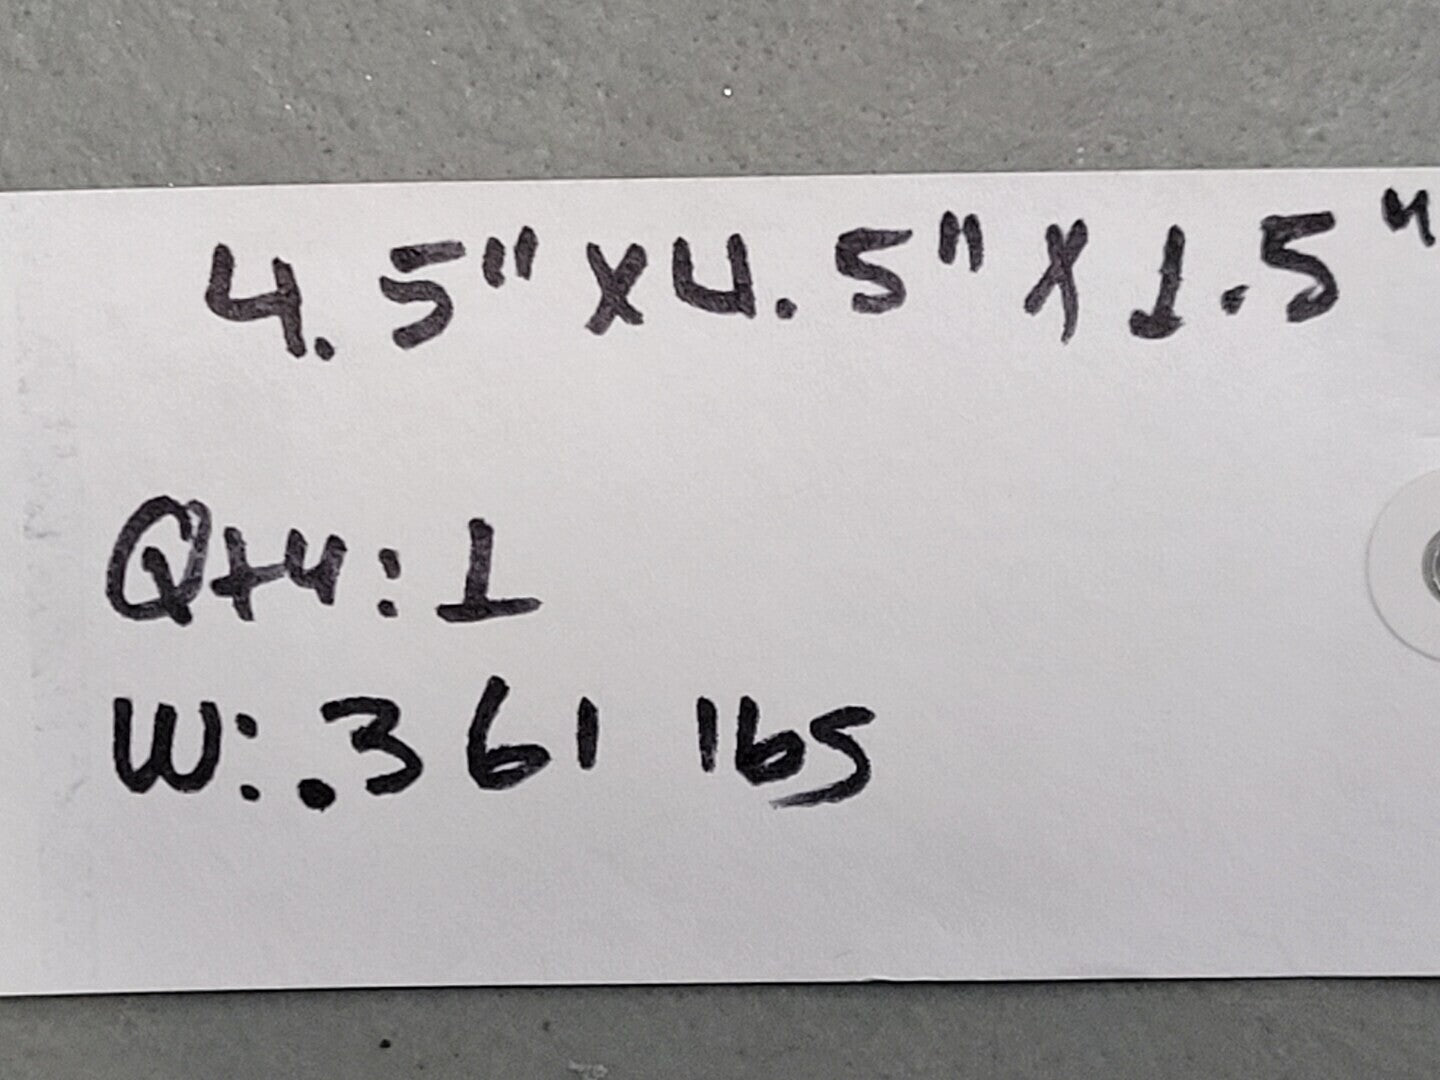 4.5" x 4.5" x 1.5"
Qty: 1
W: .361 lbs